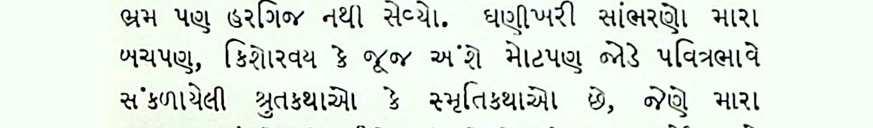 ભ્રમ પણ હરગિજ નથી સેવ્યો. ઘણીખરી સાંભરણો મારા
બચપણ, કિશોરવય કે જૂજ અંશે મોટપણ જોડે પવિત્રભાવે
સંકળાયેલી શ્રુતકથાઓ કે સ્મૃતિકથાઓ છે, જેણે મારા